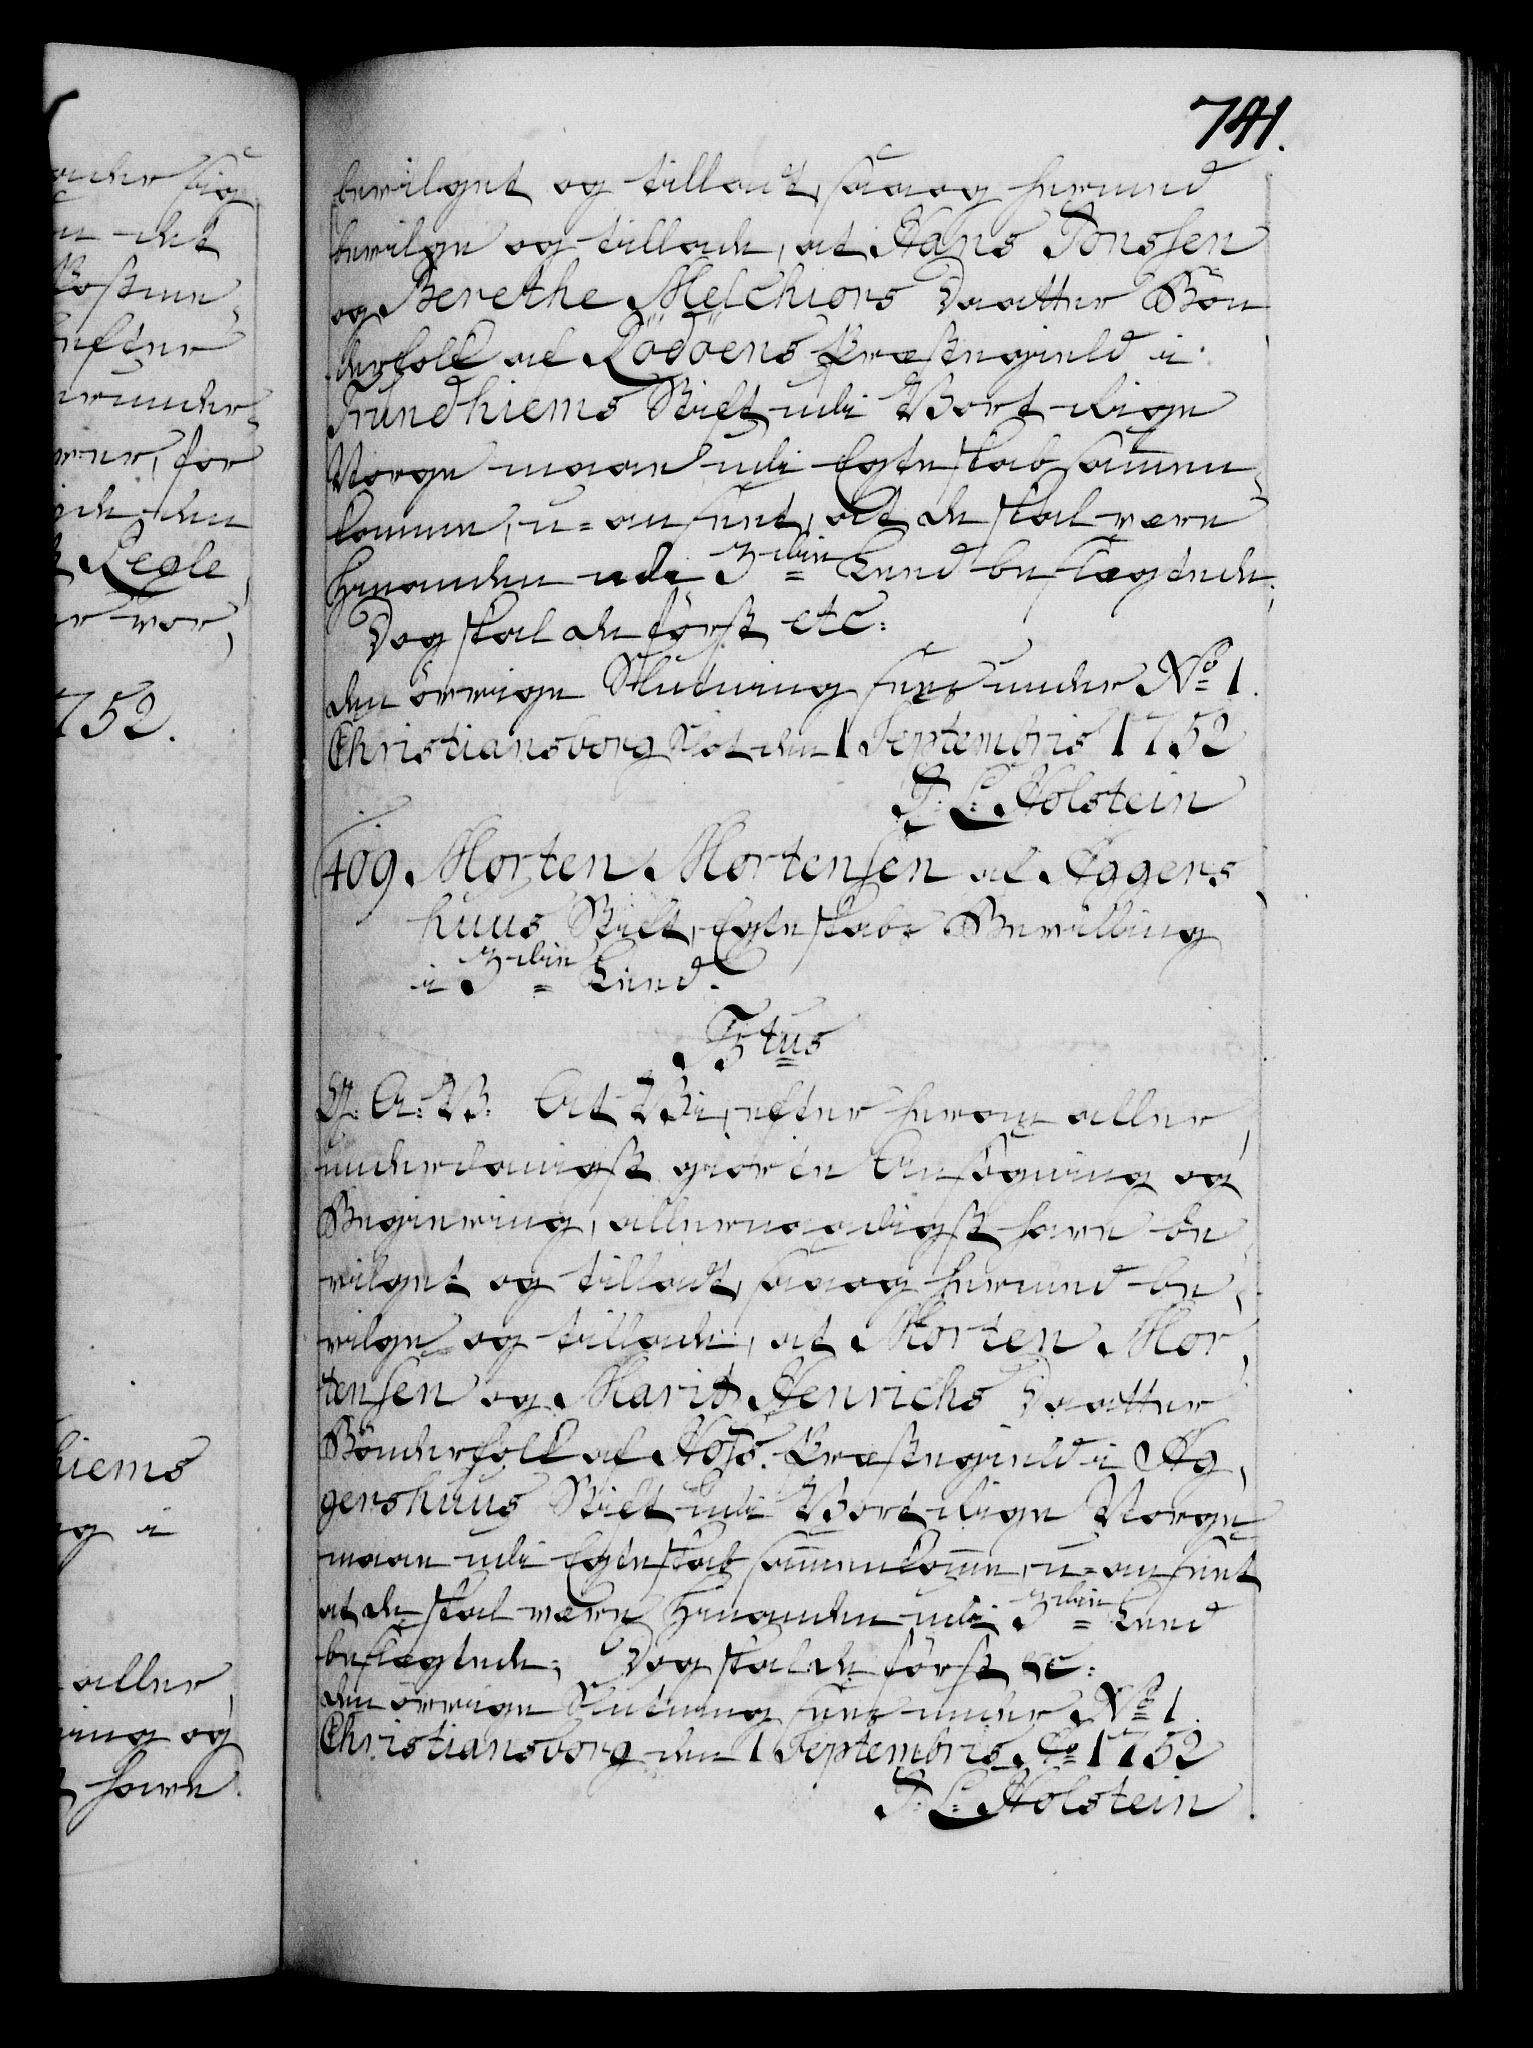 741.
bevilget og tilladt, saa og hermed
bevilge og tillade, at Hans Jonssen
og Berethe Melchiors Daatter Bön
derfolk af Rödöens Præstegield i
Trundhiems Stift udi Vort Rige
Norge maae udi Egteskab sammen,
komme, u-anseet, at de skal være
hinanden udi 3die Leed beslægtede;
Dog skal de först etc:
den övrige Slutning sees under No 1.
Christiansborg Slot den 1 Septembris 1752
J: L: Holstein
409. Morten Mortensen af Aggers
huus Stift, Egteskabs Bevilling
i 3die Leed.
F5tus
G: A: V: At Vi, efter herom aller,
underdanigst giorte Ansögning og
Begiering, allernaadigst have be
vilget og tilladt, saa og hermed be,
vilge og tillade, at Morten Mor,
tensen og Marit Henrichs Daatter
Bönderfolk af Hofs Præstegield i Ag,
gershuus Stift udi Vort Rige Norge
maae udi Egteskab sammenkomme, u-anseet
at de skal være hinanden udi 3die Leed
beslægtede; Dog skal de först etc:
den övrige Slutning sees under No 1.
Christiansborg den 1 Septembris Ao 1752
J: L: Holstein
det
efter
for
Regle
vor,
752.
hiems
og i
aller,
ning og
have